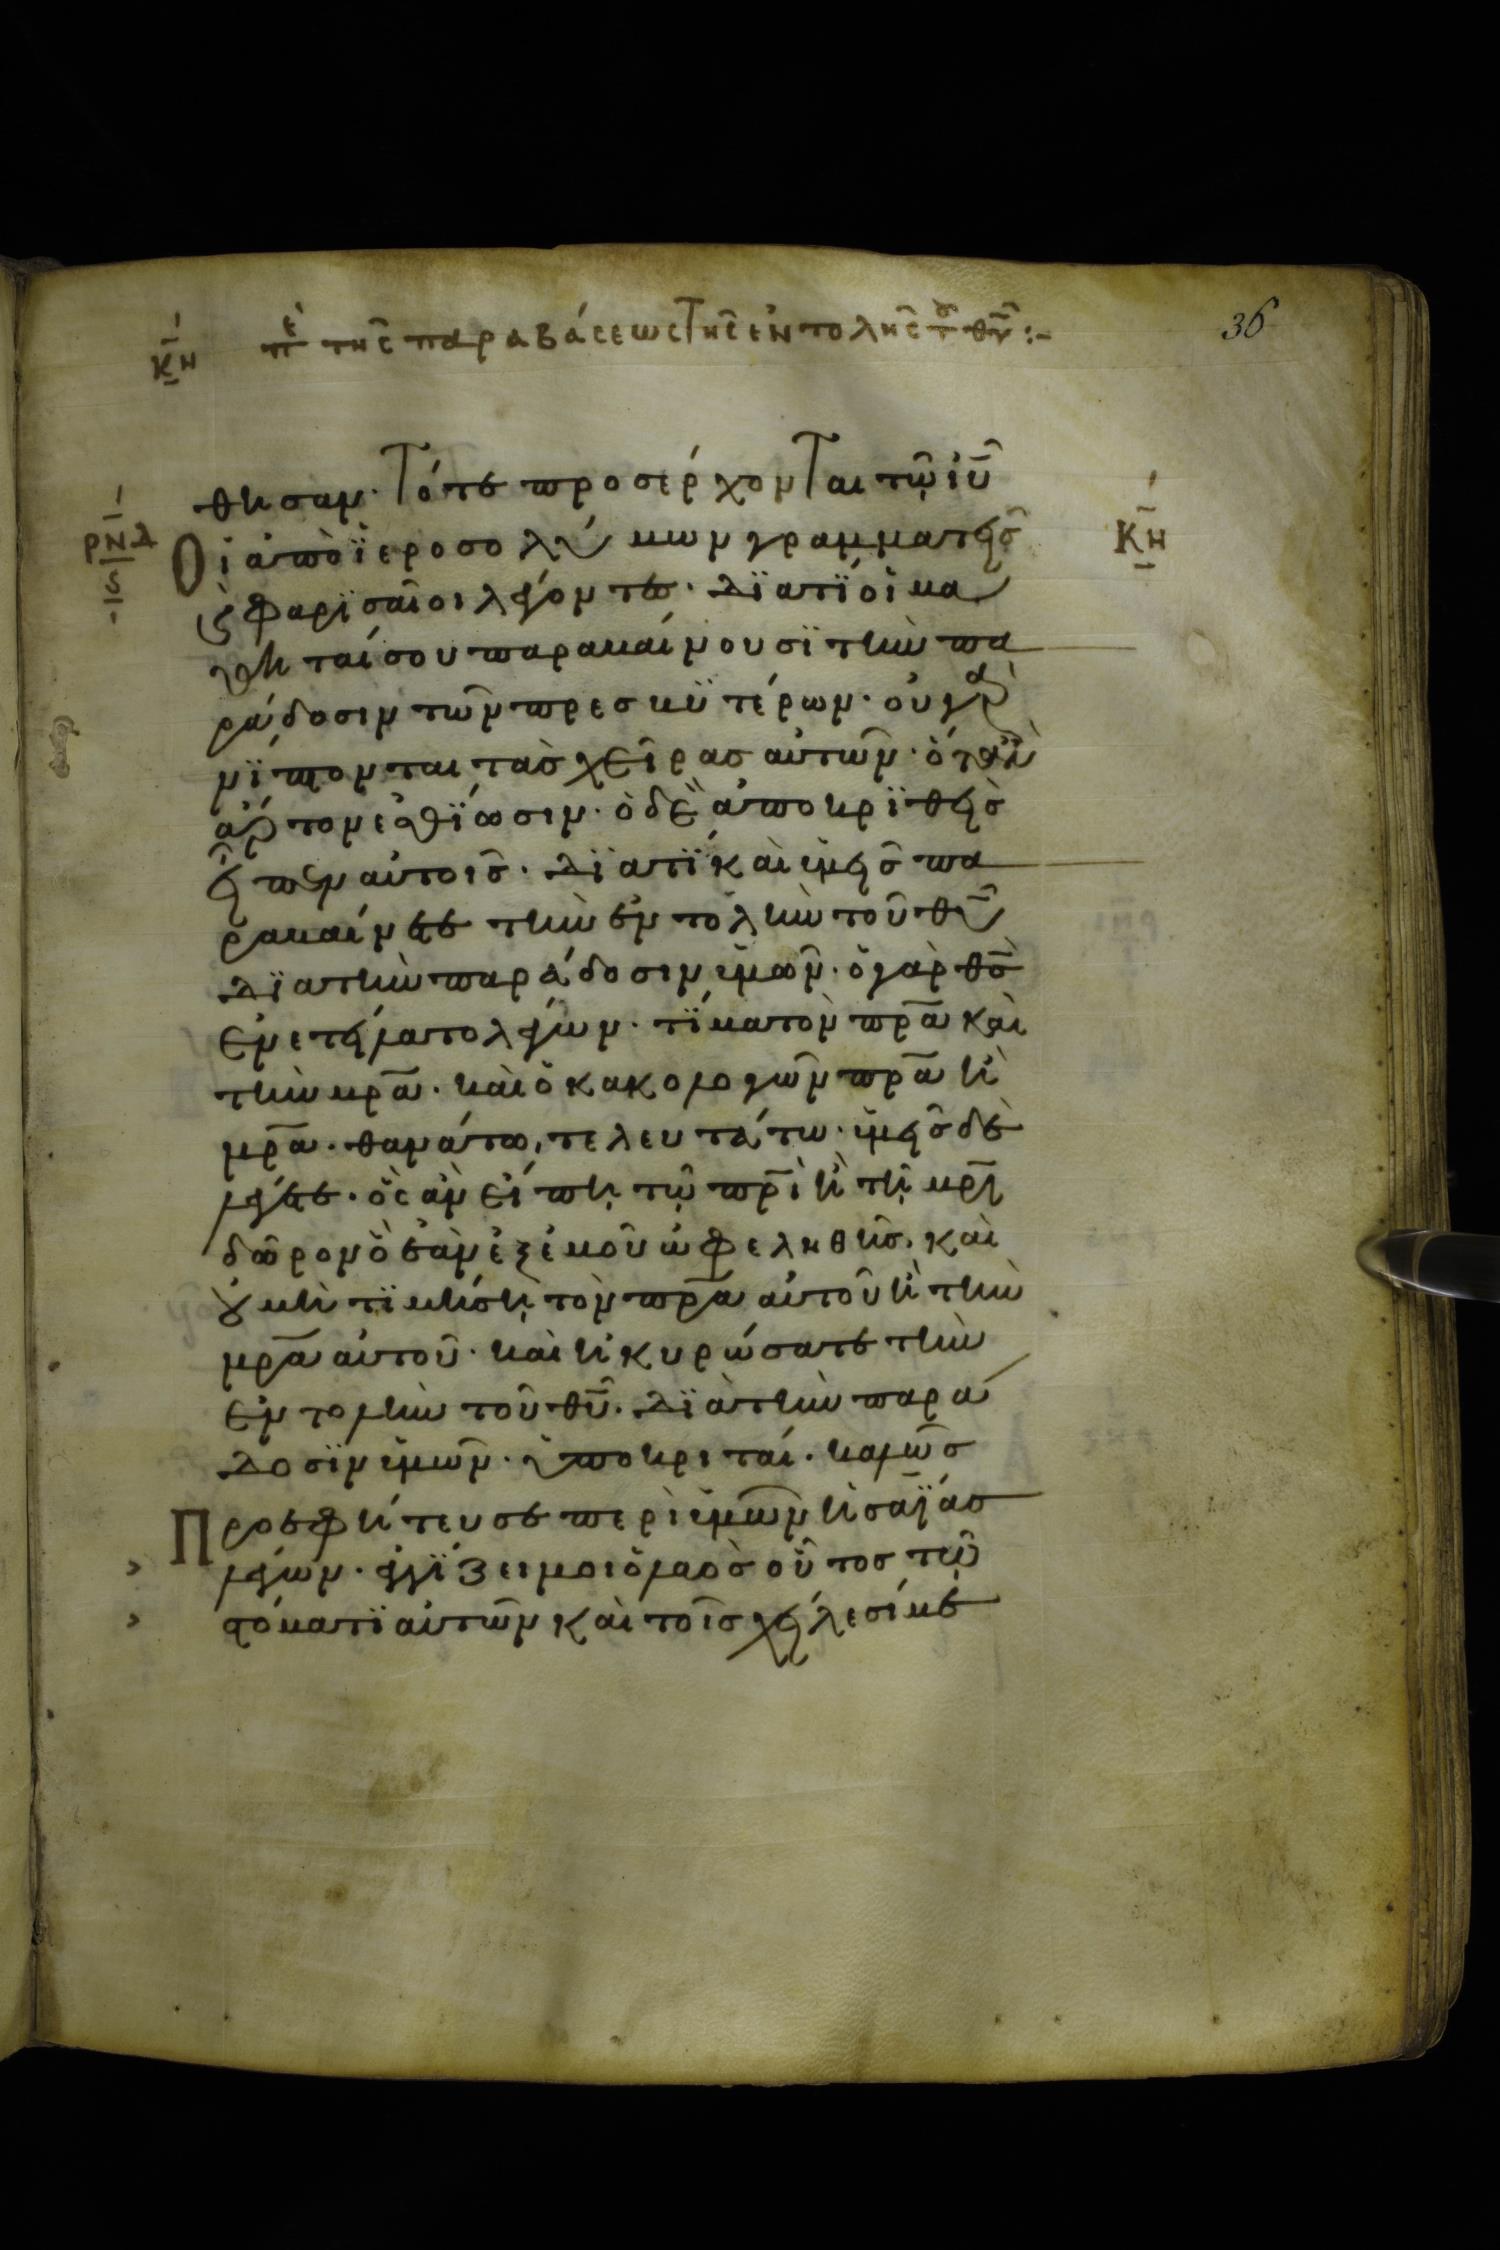 κη πε της παραβάσεως της ἐντολης τοῦ θυ :- 36
θησαν· Τότε προσέρχονται τῶ ἰῦ
ρνδ ς Οἱ ἀπὸ ϊεροσολύμων γραμματεῖσ κη
ϛ φαρϊσαῖοι λέγοντεσ· Διατϊ οἱ μα
θηταί σου παραβαίνουσϊ τὴν πα
ράδοσιν τῶν πρεσβϋτέρων· οὐ γὰρ
νίπτονται τὰσ χεῖρασ αὐτῶν· ὅταν
ἄρτον ἐσθϊωσιν· ὁ δὲ ἀποκρϊθεὶσ
εἶπεν αὐτοῖσ· Διατϊ καὶ ὑμεῖσ πα
ραβαίνετε τὴν ἐντολὴν τοῦ θῦ
Διὰ τὴν παράδοσιν ὑμῶν· ὁ γὰρ θσ
ἐνετείλατο λέγων· τίμα τὸν πρα καὶ
τὴν μρα· καὶ ὁ κακολογῶν πρα ἢ
μρα· θανάτω τελευτάτω· ὑμεῖσ δὲ
λέγετε· ὃς ἂν εἴπη τῶ πρὶ ἢ τῆ μρϊ
δῶρον ὃ ἐὰν ἐξ ἐμοῦ ὠφεληθῆσ· καὶ
οὐ μὴ τϊμήση τὸν πρα αὐτοῦ ἢ τὴν
μρα αὐτοῦ· καὶ ἠκυρώσατε τὴν
ἐντολὴν τοῦ θῦ· Διὰ τὴν παρά
Δοσϊν ὑμῶν· ὑποκριταί· καλῶσ
Προεφήτευσε περὶ ὑμῶν ἠσαΐασ
> λέγων· ἐγγϊζει μοι ὁ λαὸσ οὗτοσ τῶ
> στόματϊ αὐτῶν καὶ τοῖσ χείλεσί με